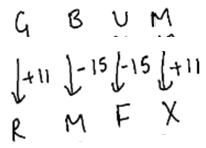 G B U M
+11 -15 -15 +11
R M F X